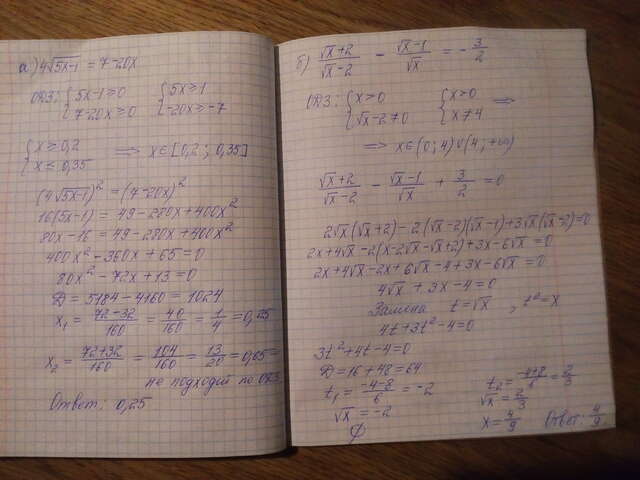 а) 4√(5x-1) = 7-20x
ОДЗ: {5x-1≥0 {5x≥1
{7-20x≥0 {-20x≥-7
{x≥0,2
{x≤0,35 ⟹ x∈[0,2; 0,35]
(4√(5x-1))² = (7-20x)²
16(5x-1) = 49-280x+400x²
80x-16 = 49-280x+400x²
400x²-360x+65=0
80x²-72x+13=0
D = 5184-4160 = 1024
x₁ = (72-32)/160 = 40/160 = 1/4 = 0,25
x₂ = (72+32)/160 = 104/160 = 13/20 = 0,65 –
не подходит по ОДЗ.
Ответ: 0,25
б) (√x+2)/(√x-2) - (√x-1)/√x = -3/2
ОДЗ: {x>0 {x>0
{√x-2≠0 {x≠4 ⟹
⟹ x∈(0; 4)∪(4; +∞)
(√x+2)/(√x-2) - (√x-1)/√x + 3/2 = 0
2√x(√x+2)-2(√x-2)(√x-1)+3√x(√x-2)=0
2x+4√x-2(x-2√x-√x+2)+3x-6√x=0
2x+4√x-2x+6√x-4+3x-6√x=0
4√x+3x-4=0
Замена t=√x, t²=x
4t+3t²-4=0
3t²+4t-4=0
D=16+48=64
t₁ = (-4-8)/6 = -2 t₂ = (-4+8)/6 = 2/3
√x = -2 √x = 2/3
∅ x = 4/9 Ответ: 4/9.